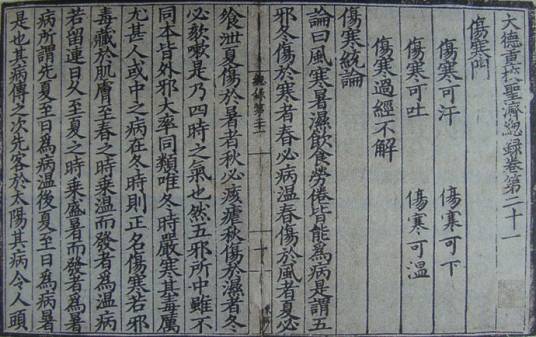 大德重校聖濟總録卷第二十一
傷寒門
傷寒可汗　傷寒可下
傷寒可吐　傷寒可溫
傷寒過經不解
傷寒統論
論曰風寒暑濕飲食勞倦皆能為病是謂五
邪冬傷於寒者春必病温春傷於風者夏必
飱泄夏傷於暑者秋必痎瘧秋傷於濕者冬
必欬嗽是乃四時之氣也然五邪所中雖不
同本皆外邪大率同類唯冬時嚴寒其毒厲
尤甚人或中之病在冬時則正名傷寒若邪
毒藏於肌膚至春之時乗温而發者為温病
若留連日久至夏之時乗盛暑而發者為暑
病所謂先夏至日為病温後夏至日為病暑
是也其病傳之次先客於太陽其病令人頭